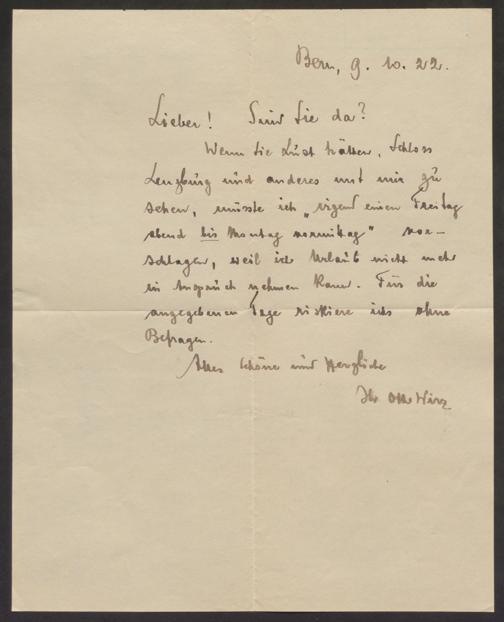 Bern, 9. 10. 22.
Lieber! Sind Sie da?
Wenn Sie Lust hätten, Schloss
Lenzburg und anderes mit mir zu
sehen, müsste ich „irgend einen Freitag
abend bis Montag vormittag" vor-
schlagen, weil ich Urlaub nicht mehr
in Anspruch nehmen kann. Für die
angegebenen Tage riskiere ich's ohne
Befragen.
Alles Schöne und Herzliche
Ihr Otto Wirz